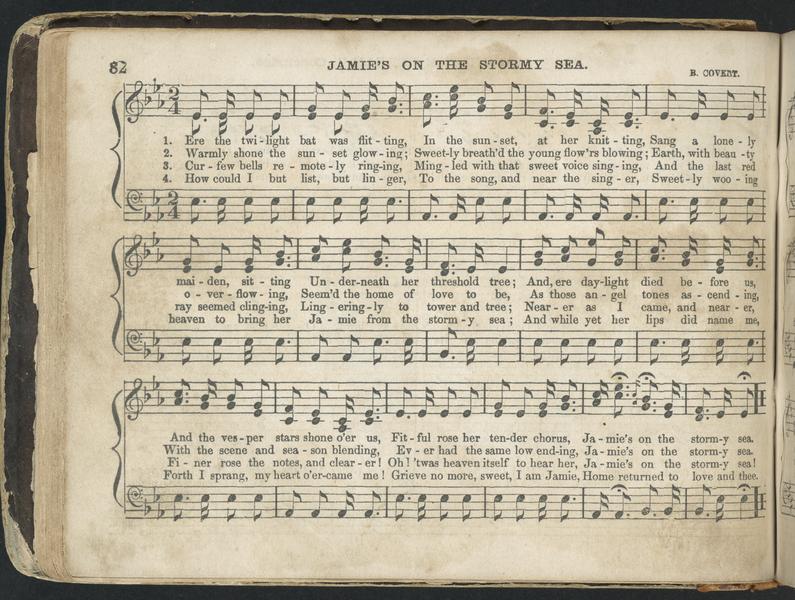 82
JAMIE'S ON THE STORMY SEA.
B. COVERT.
1. Ere the twi-light bat was flit-ting, In the sun-set, at her knit-ting, Sang a lone-ly
2. Warmly shone the sun-set glow-ing; Sweet-ly breath'd the young flow'rs blowing; Earth, with beau-ty
3. Cur-few bells re-mote-ly ring-ing, Ming-led with that sweet voice sing-ing, And the last red
4. How could I but list, but lin-ger, To the song, and near the sing-er, Sweet-ly woo-ing
mai-den, sit-ting Un-der-neath her threshold tree; And, ere day-light died be-fore us,
o-ver-flow-ing, Seem'd the home of love to be, As those an-gel tones as-cend-ing,
ray seemed cling-ing, Ling-ering-ly to tower and tree; Near-er as I came, and near-er,
heaven to bring her Ja-mie from the storm-y sea; And while yet her lips did name me,
And the ves-per stars shone o'er us, Fit-ful rose her ten-der chorus, Ja-mie's on the storm-y sea.
With the scene and sea-son blending, Ev-er had the same low end-ing, Ja-mie's on the storm-y sea.
Fi-ner rose the notes, and clear-er! Oh! 'twas heaven itself to hear her, Ja-mie's on the storm-y sea!
Forth I sprang, my heart o'er-came me! Grieve no more, sweet, I am Jamie, Home returned to love and thee.